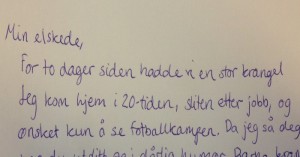 Min elskede,
For to dager siden hadde vi en stor krangel
Jeg kom hjem i 20-tiden, sliten etter jobb, og
ønsket kun å se fotballkampen. Da jeg så deg